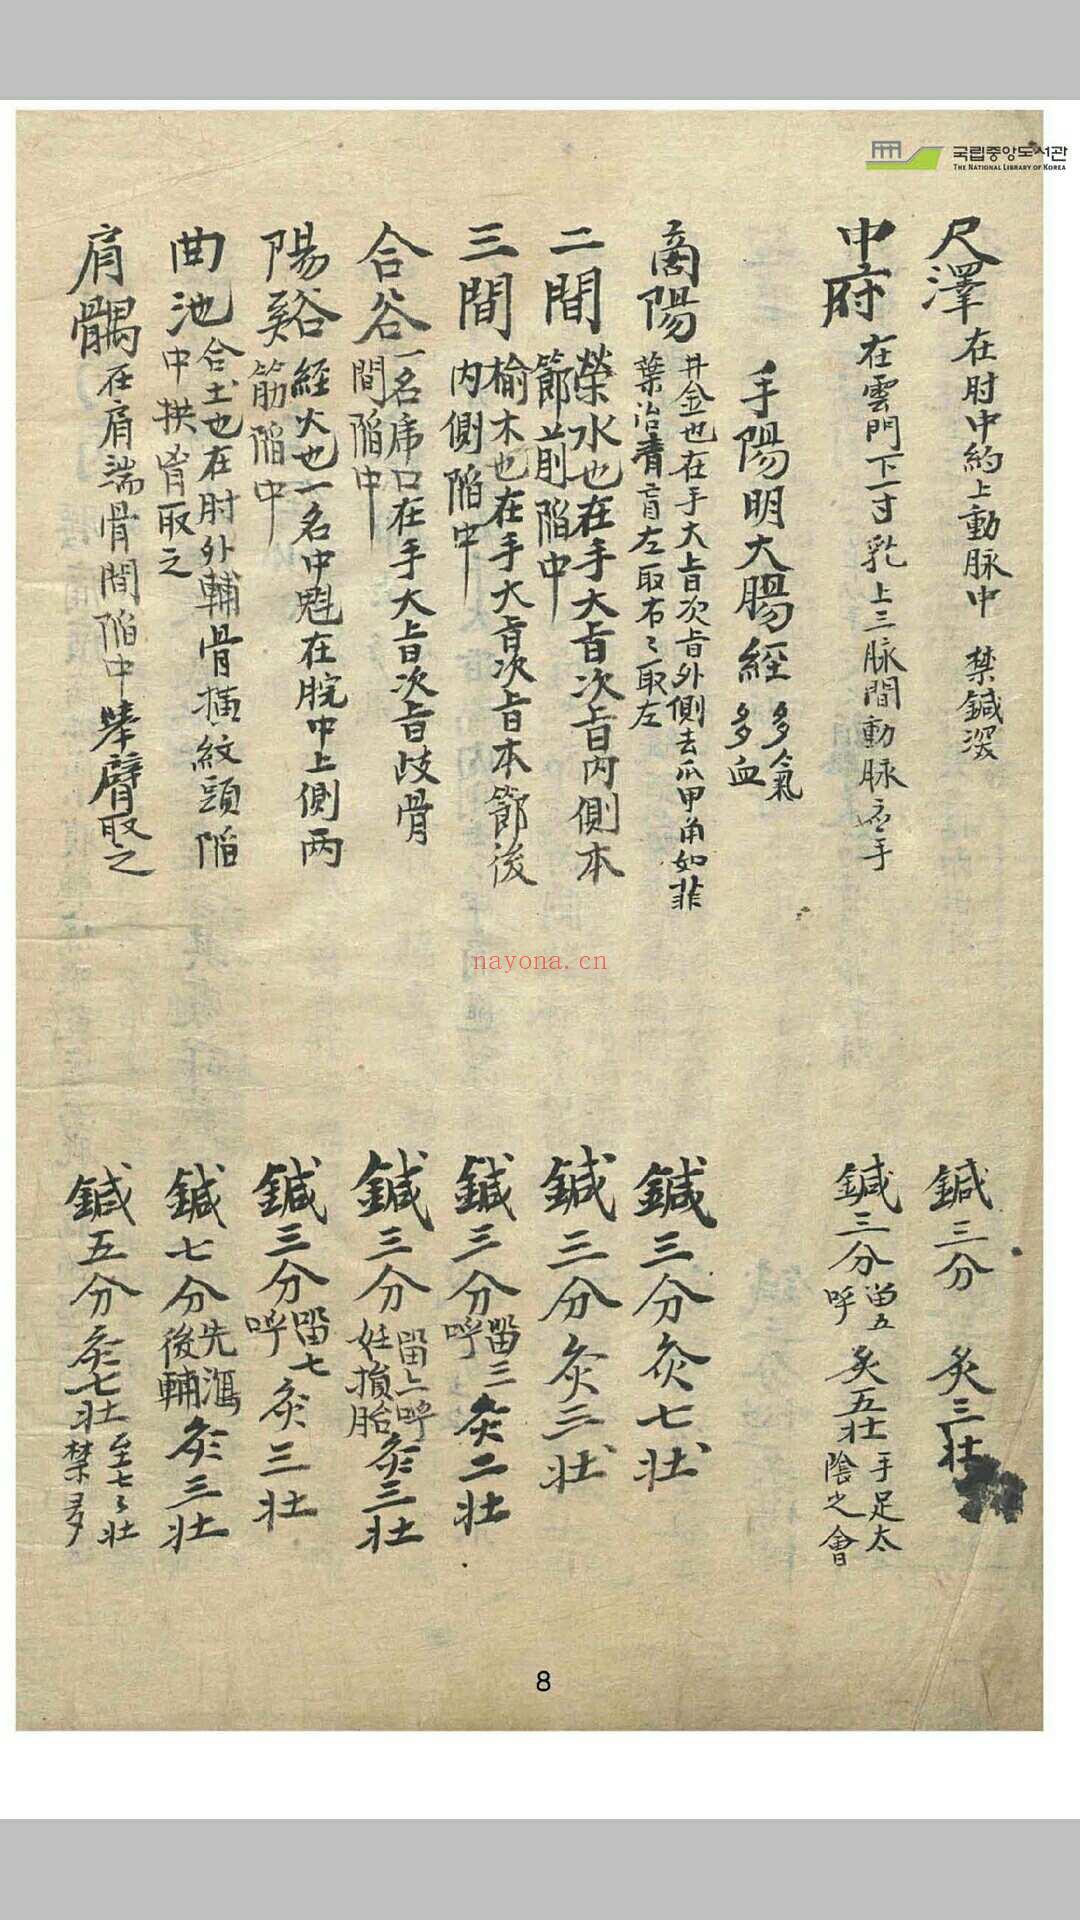 국립중앙도서관
THE NATIONAL LIBRARY OF KOREA
尺澤 在肘中約上動脉中 禁鍼深 鍼三分 灸三壯
中府 在雲門下一寸乳上三脉間動脉应手 鍼三分 留五呼 灸五壯 手足太陰之會
手陽明大腸經 多氣多血
商陽 井金也在手大旨次旨外側去爪甲角如韭葉治青盲左取右〻取左 鍼三分 灸七壯
二間 榮水也在手大旨次旨內側本節前陷中 鍼三分 灸三壯
三間 榆木也在手大旨次旨本節後內側陷中 鍼三分 留三呼 灸二壯
合谷 一名席口在手大旨次旨歧骨間陷中 鍼三分 留上呼 妊損胎 灸三壯
陽谿 經火也一名中魁在腕中上側两筋陷中 鍼三分 留七呼 灸三壯
曲池 合土也在肘外輔骨橫紋頭陷中拱胷取之 鍼七分 先瀉後輔 灸三壯
肩髃 在肩端骨間陷中舉臂取之 鍼五分 灸七壯 至七〻壯禁多
nayona.cn
8